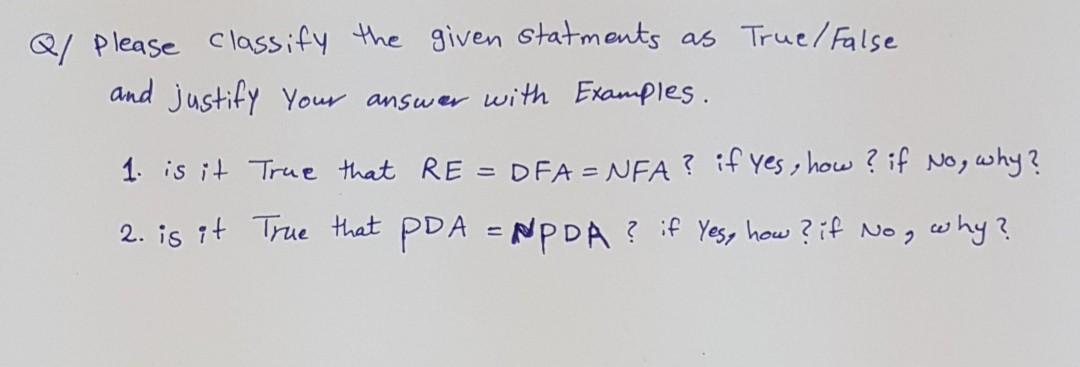 Q/ Please classify the given statments as True/False
and justify Your answer with Examples.
1. is it True that RE = DFA = NFA ? if Yes, how ? if No, why ?
2. is it True that PDA = NPDA ? if Yes, how ? if No, why ?